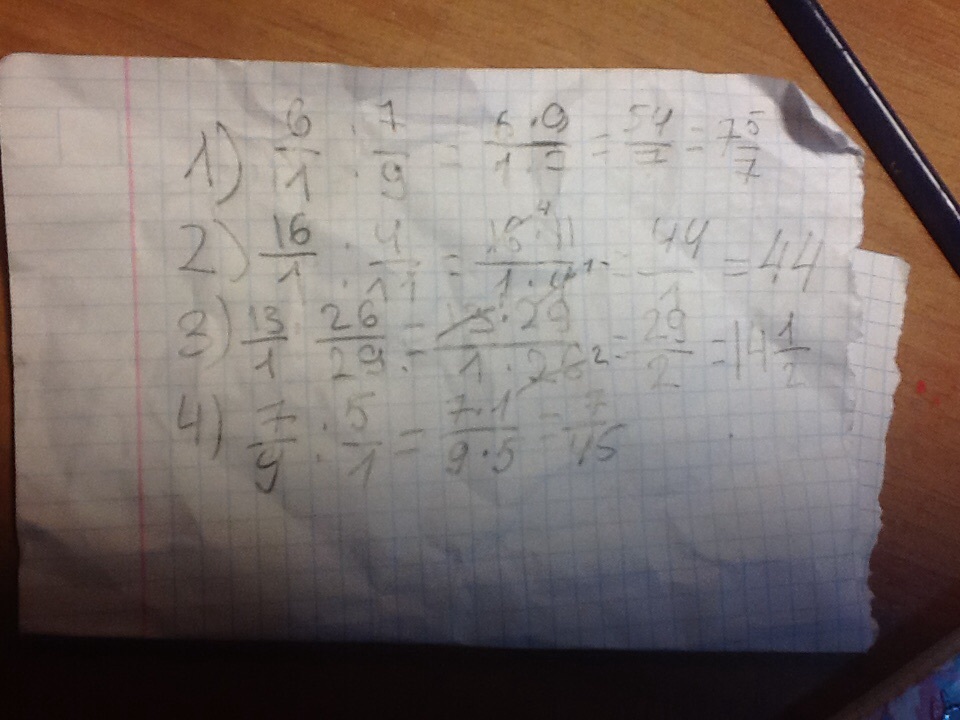 1) 6/1 : 7/9 = 6·9/1·7 = 54/7 = 7 5/7
2) 16/1 : 4/11 = 16 4·11/1·4 1 = 44/1 = 44
3) 13/1 : 26/29 = 13·29/1·26 2 = 29/2 = 14 1/2
4) 7/9 : 5/1 = 7·1/9·5 = 7/45